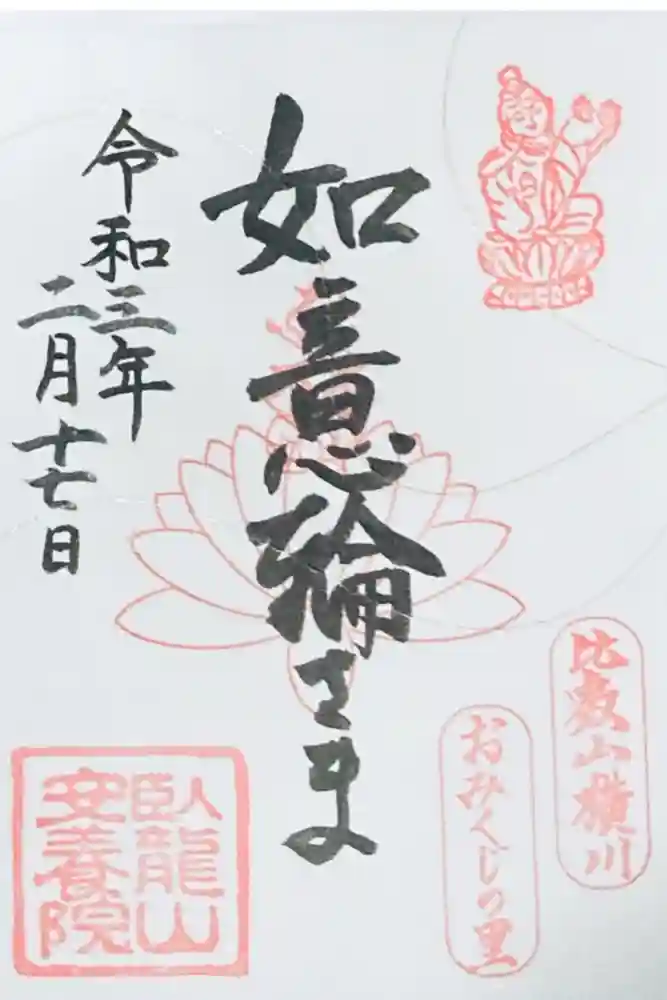 比叡山横川
おみくじの里
如意輪さま
令和三年
二月十七日
臥龍山
安養院